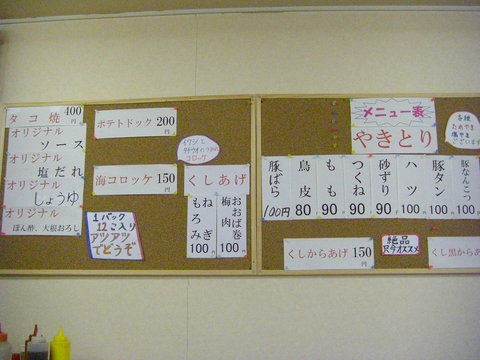 タコ焼 400円
オリジナル
ソース
オリジナル
塩だれ
オリジナル
しょうゆ
オリジナル
ぽん酢、大根おろし
ポテトドック 200円
海コロッケ 150円
コロッケ
1パック
12こ入り
アツアツ
でどうぞ
くしあげ
おおば巻
梅肉
100円
ねぎ
もろみ
100円
メニュー表
やきとり
各種
ございます
豚なんこつ 100円
豚タン 100円
ハツ 100円
砂ずり 90
つくね 90
もも 90
鳥皮 80
豚ばら 100円
くしからあげ 150円
絶品
只今オススメ
くし黒からあ